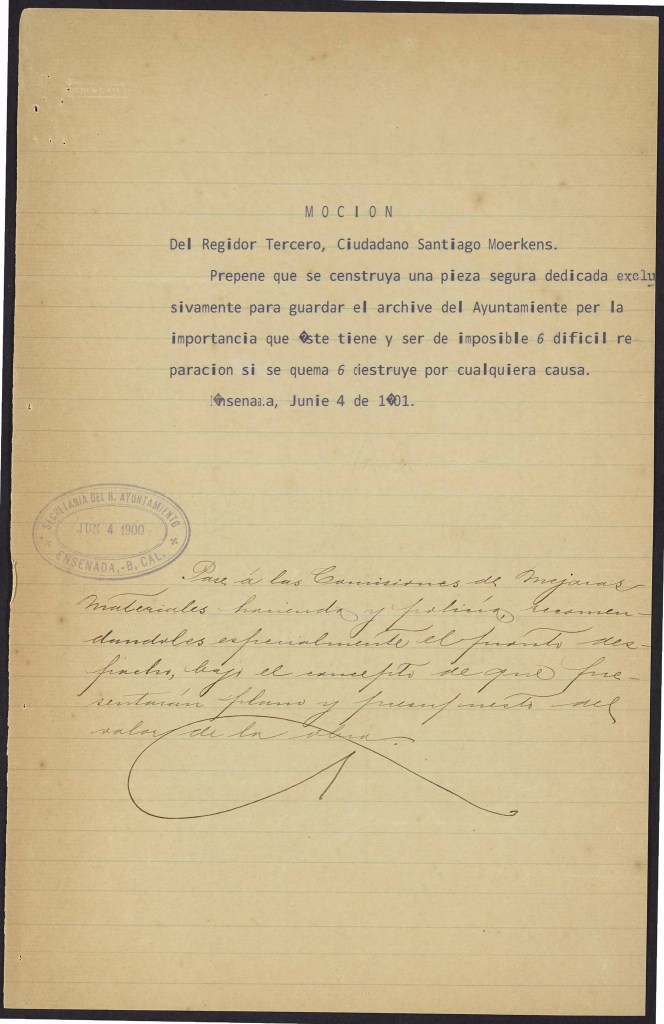 MOCION
Del Regidor Tercero, Ciudadano Santiago Moerkens.
Prepene que se censtruya una pieza segura dedicada exclu
sivamente para guardar el archive del Ayuntamiente per la
importancia que �ste tiene y ser de imposible 6 dificil re
paracion si se quema 6 destruye por cualquiera causa.
Junie 4 de 1�01.
SECRETARIA DEL H. AYUNTAMIENTO
JUN 4 1900
ENSENADA,-B. CAL.
Pase á las Comisiones de Mejoras
Materiales hacienda y policía, recomen-
dandoles especialmente el pronto des-
pacho, bajo el concepto de que pre-
sentarán plano y presupuesto del
valor de la obra.